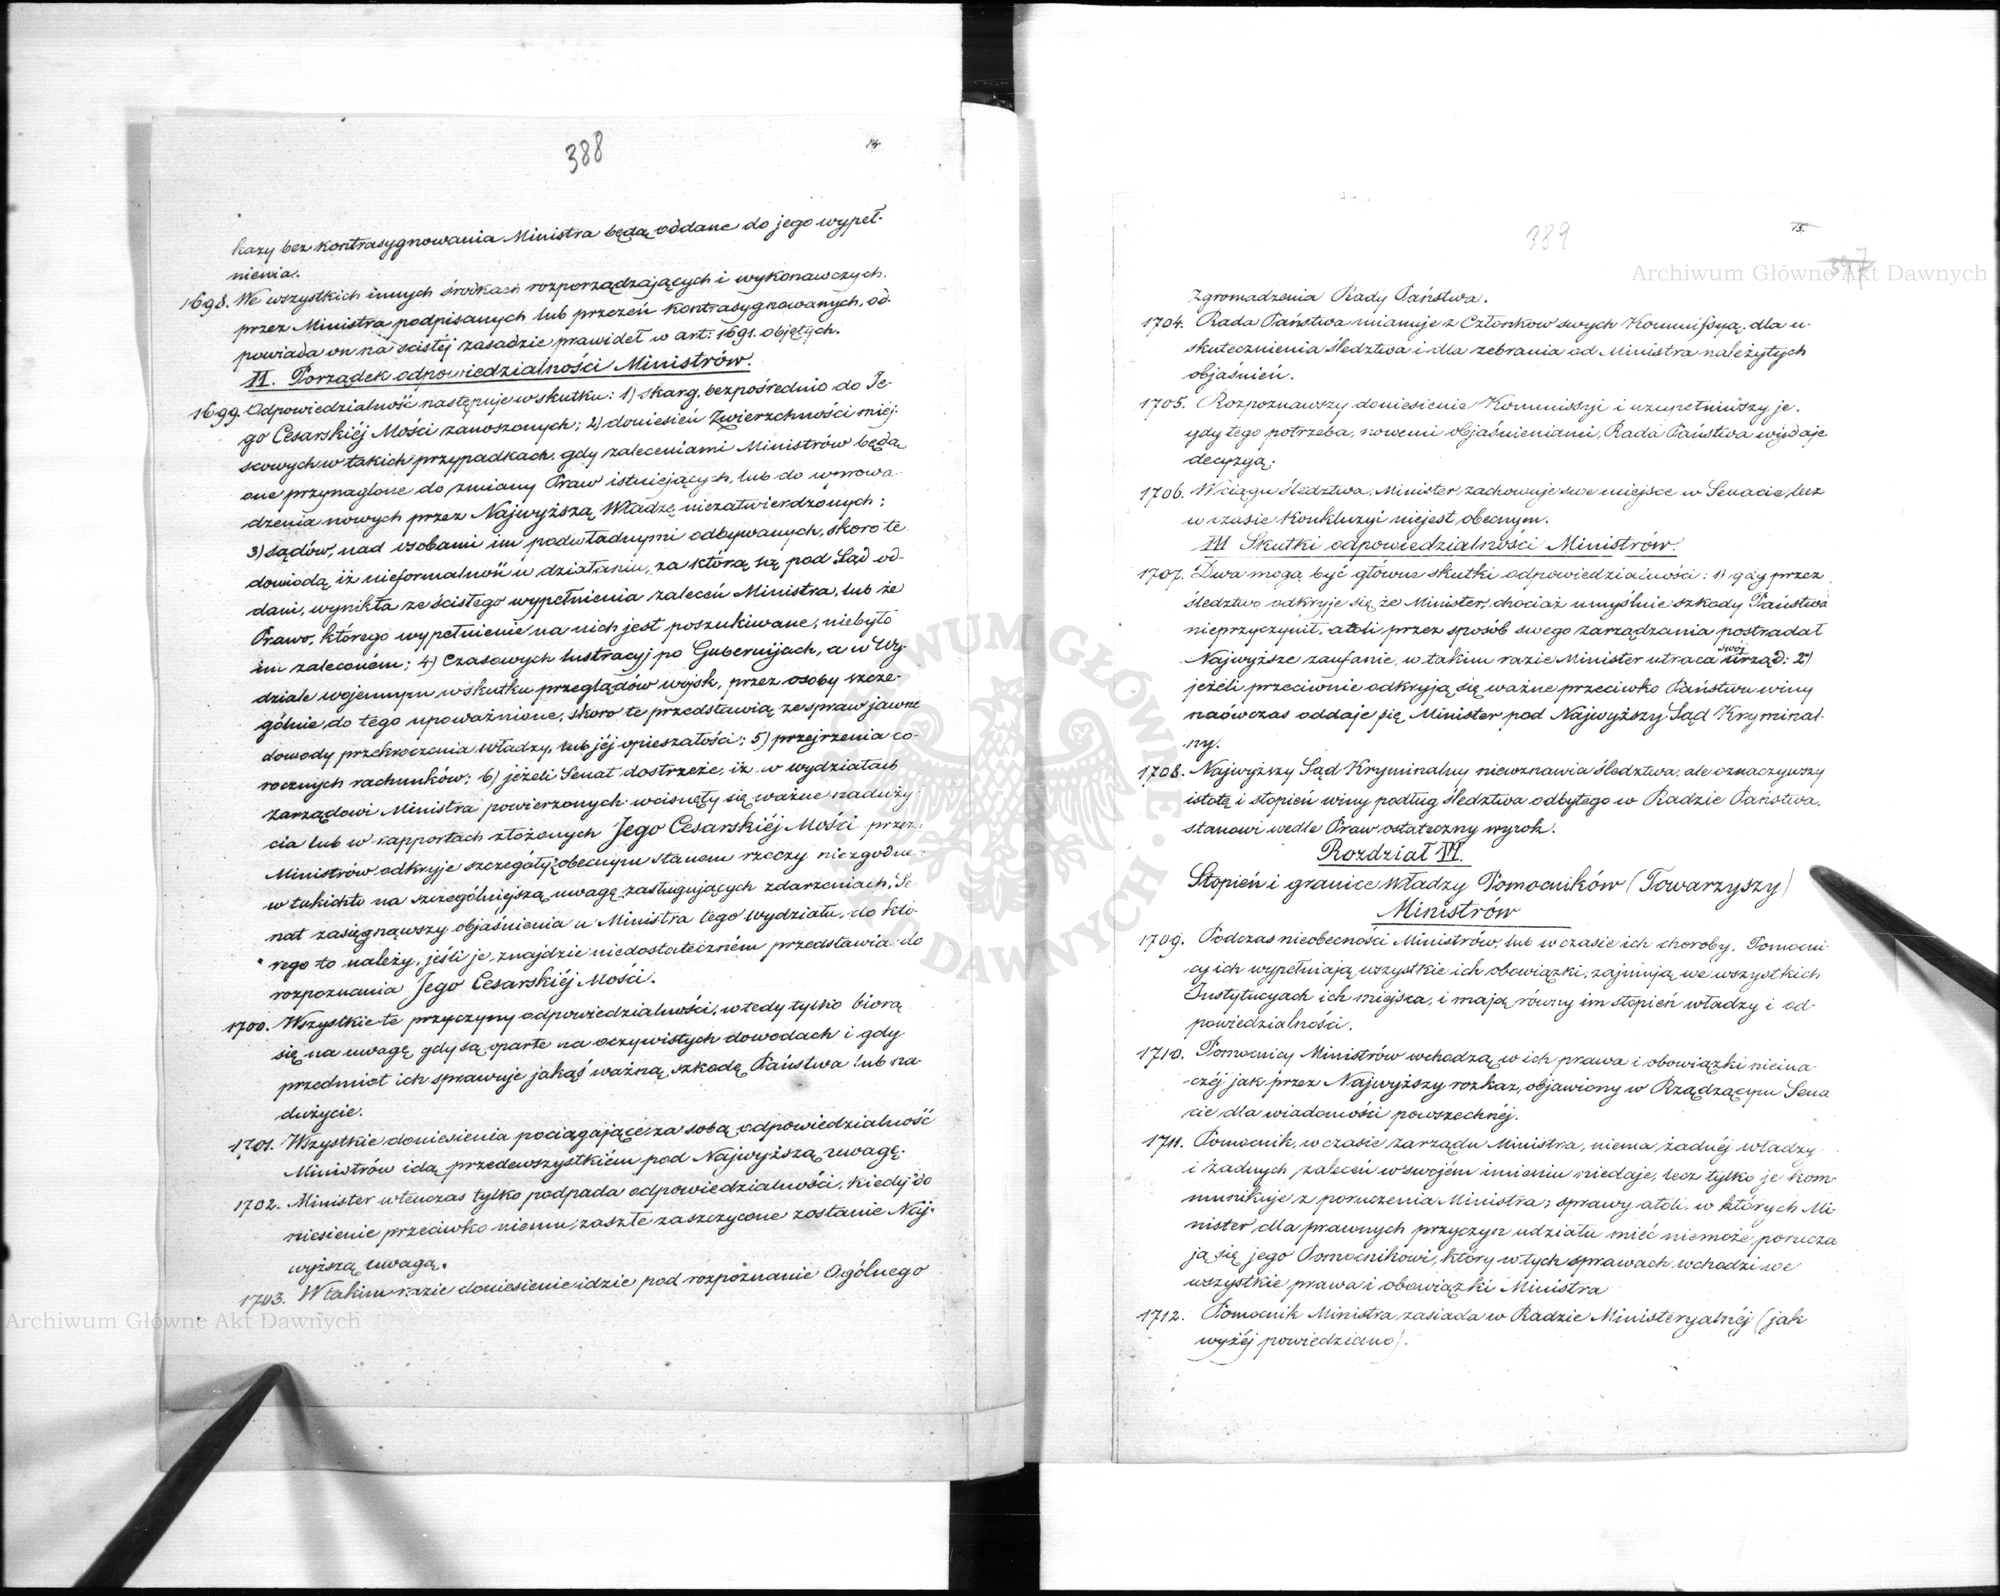 388
14.
kazy bez kontrasygnowania Ministra będą oddane do jego wypeł-
nienia.
1698. We wszystkich innych środkach rozporządzających i wykonawczych.
przez Ministra podpisanych lub przezeń kontrasygnowanych, od-
powiada on na ścisłéj zasadzie prawideł w art: 1691. objętych.
II. Porządek odpowiedzialności Ministrów.
1699. Odpowiedzialność następuje wskutku: 1) skarg, bezpośrednio do Je-
go Cesarskiéj Mości zanoszonych; 2) doniesień Zwierzchności miéj-
scowych w takich przypadkach, gdy zaleceniami Ministrów będą
one przynaglone do zmiany Praw istniejących, lub do wprowa-
dzenia nowych przez Najwyższą Władzę niezatwierdzonych;
3) sądów, nad osobami im podwładnymi odbywanych, skoro te
dowiodą, iż nieformalność w działaniu, za którą są pod Sąd od-
dani, wynikła ze ścisłego wypełnienia zaleceń Ministra, lub że
Prawo, którego wypełnienie na nich jest poszukiwane, niebyło
im zaleconém; 4) Czasowych lustracyj po Gubernijach, a w Wy-
dziale wojennym wskutku przeglądów wojsk, przez osoby szcze-
gólnie do tego upoważnione, skoro te przedstawią ze spraw jawne
dowody przekroczenia władzy, lub jéj opieszałości; 5) przejrzenia co-
rocznych rachunków; 6) jeżeli Senat dostrzeże, iż w wydziałach
zarządowi Ministra powierzonych wcisnęły się ważne naduży-
cia lub w rapportach złożonych Jego Cesarskiéj Mości przez
Ministrów odkryje szczegóły z obecnym stanem rzeczy niezgodne
w tukichto na szczególniejszą uwagę zasługujących zdarzeniach, Se-
nat zasięgnąwszy objaśnienia u Ministra tego wydziału, do któ-
rego to należy, jeśli je znajdzie niedostateczném przedstawia do
rozpoznania Jego Cesarskiéj Mości.
1700. Wszystkie te przyczyny odpowiedzialności, wtedy tylko biorą
się na uwagę gdy są oparte na oczywistych dowodach i gdy
przedmiot ich sprawuje jakąś ważną szkodę Państwa lub na-
dużycie.
1701. Wszystkie doniesienia pociągające za sobą odpowiedzialność
Ministrów idą przedewszystkiém pod Najwyższą uwagę.
1702. Minister wtenczas tylko podpada odpowiedzialności, kiedy do
niesienie przeciwko niemu zaszłe zaszczycone zostanie Naj-
wyższą uwagą.
1703. W takim razie doniesienie idzie pod rozpoznanie Ogólnego
Archiwum Główne Akt Dawnych
389
15.
397
Archiwum Główne Akt Dawnych
Zgromadzenia Rady Państwa.
1704. Rada Państwa mianuje z Członków swych Kommissyą, dla u-
skutecznienia śledztwa i dla zebrania od Ministra należytych
objaśnień.
1705. Rozpoznawszy doniesienie Kommissyi i uzupełniwszy je,
gdy tego potrzeba, nowemi objaśnieniami, Rada Państwa wydaje
decyzyą.
1706. W ciągu śledztwa, Minister zachowuje swe miejsce w Senacie, lecz
w czasie Konkluzyi niejest obecnym.
III Skutki odpowiedzialności Ministrów.
1707. Dwa mogą być główne skutki odpowiedzialności: 1) gdy przez
śledztwo odkryje się, że Minister, chociaż umyślnie szkody Państwa
nieprzyczynił, atoli przez sposób swego zarządzania postradał
Najwyższe zaufanie, w takim razie Minister utraca swój urząd: 2)
jeżeli przeciwnie odkryją się ważne przeciwko Państwu winy
naówczas oddaje się Minister pod Najwyższy Sąd Kryminal-
ny.
1708. Najwyższy Sąd Kryminalny niewznawia śledztwa, ale oznaczywszy
istotę i stopień winy podług śledztwa odbytego w Radzie Państwa,
stanowi wedle Praw ostateczny wyrok.
Rozdział VI.
Stopień i granice władzy Pomocników (Towarzyszy)
Ministrów
1709. Podczas nieobecności Ministrów, lub w czasie ich choroby, Pomocni-
cy ich wypełniają wszystkie ich obowiązki, zajmują we wszystkich
Instytucyach ich miejsca, i mają równy im stopień władzy i od-
powiedzialności.
1710. Pomocnicy Ministrów wchodzą w ich prawa i obowiązki nieina-
czéj jak przez Najwyższy rozkaz, objawiony w Rządzącym Sena
cie dla wiadomości powszechnéj.
1711. Pomocnik, w czasie zarządu Ministra, niema żadnéj władzy
i żadnych zaleceń w swojém imieniu niedaje, lecz tylko je kom-
munikuje z poruczenia Ministra; sprawy atoli, w których Mi-
nister dla prawnych przyczyn udziału mieć niemoże, porucza
ją się jego Pomocnikowi, który w tych sprawach wchodzi we
wszystkie prawa i obowiązki Ministra
1712. Pomocnik Ministra zasiada w Radzie Ministeryalnéj (jak
wyżéj powiedziano).
ARCHIWUM GŁÓWNE AKT DAWNYCH